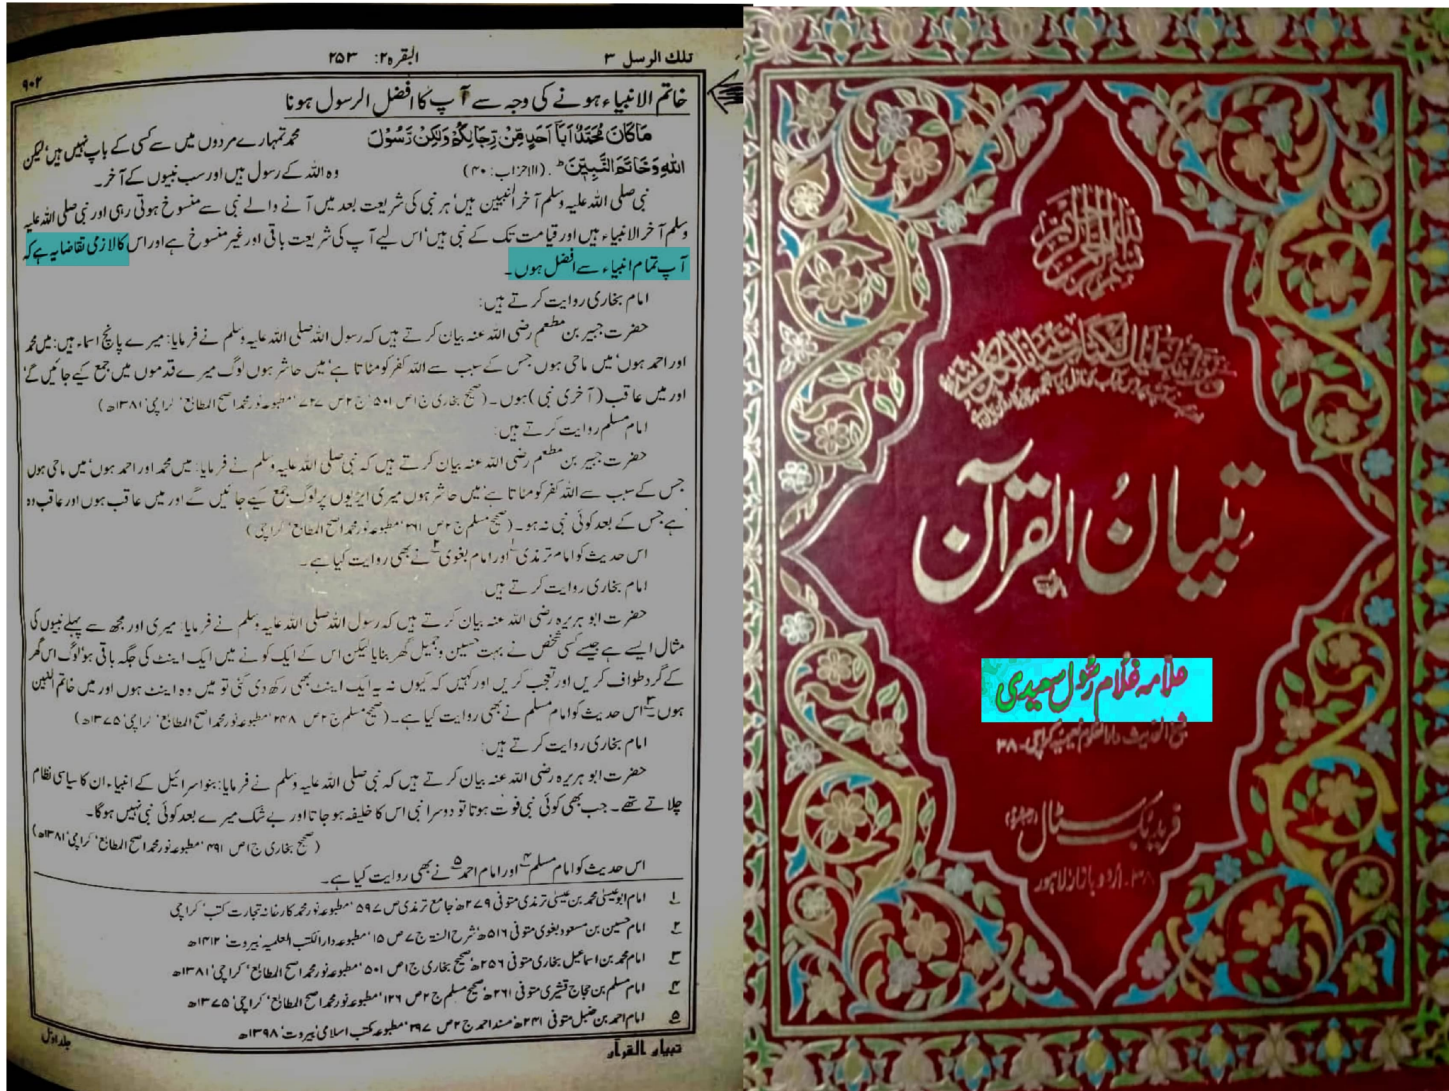 تلك الرسل ۳
البقرہ۲: ۲۵۳
۹۰۲
خاتم الانبیاء ہونے کی وجہ سے آپ کا افضل الرسول ہونا
مَا كَانَ مُحَمَّدٌ اَبَآ اَحَدٍ مِّنْ رِّجَالِكُمْ وَلٰكِنْ رَّسُوْلَ
اللّٰهِ وَخَاتَمَ النَّبِيّٖنَ ؕ. (الاحزاب: ۴۰)
محمد تمہارے مردوں میں سے کسی کے باپ نہیں ہیں‘ لیکن
وہ اللہ کے رسول ہیں اور سب نبیوں کے آخر۔
نبی صلی اللہ علیہ وسلم آخر النبیین ہیں‘ ہر نبی کی شریعت بعد میں آنے والے نبی سے منسوخ ہوتی رہی اور نبی صلی اللہ علیہ
وسلم آخر الانبیاء ہیں اور قیامت تک کے نبی ہیں‘ اس لیے آپ کی شریعت باقی اور غیر منسوخ ہے اور اس کا لازمی تقاضا یہ ہے کہ
آپ تمام انبیاء سے افضل ہوں۔
امام بخاری روایت کرتے ہیں:
حضرت جبیر بن مطعم رضی اللہ عنہ بیان کرتے ہیں کہ رسول اللہ صلی اللہ علیہ وسلم نے فرمایا: میرے پانچ اسماء ہیں: میں محمد
اور احمد ہوں‘ میں ماحی ہوں جس کے سبب سے اللہ کفر کو مٹاتا ہے‘ میں حاشر ہوں لوگ میرے قدموں میں جمع کیے جائیں گے‘
اور میں عاقب (آخری نبی) ہوں۔ (صحیح بخاری ج ۱ ص ۵۰۱‘ ج ۲ ص ۷۲۷‘ مطبوعہ نور محمد اصح المطابع‘ کراچی‘ ۱۳۸۱ھ)
امام مسلم روایت کرتے ہیں:
حضرت جبیر بن مطعم رضی اللہ عنہ بیان کرتے ہیں کہ نبی صلی اللہ علیہ وسلم نے فرمایا: میں محمد اور احمد ہوں‘ میں ماحی ہوں
جس کے سبب سے اللہ کفر کو مٹاتا ہے‘ میں حاشر ہوں میری ایڑیوں پر لوگ جمع کیے جائیں گے اور میں عاقب ہوں اور عاقب وہ
ہے جس کے بعد کوئی نبی نہ ہو۔ (صحیح مسلم ج ۲ ص ۲۶۱‘ مطبوعہ نور محمد اصح المطابع‘ کراچی)
اس حدیث کو امام ترمذی۱ اور امام بغوی۲ نے بھی روایت کیا ہے۔
امام بخاری روایت کرتے ہیں
حضرت ابو ہریرہ رضی اللہ عنہ بیان کرتے ہیں کہ رسول اللہ صلی اللہ علیہ وسلم نے فرمایا: میری اور مجھ سے پہلے نبیوں کی
مثال ایسے ہے جیسے کسی شخص نے بہت حسین و جمیل گھر بنایا لیکن اس کے ایک کونے میں ایک اینٹ کی جگہ باقی ہو‘ لوگ اس گھر
کے گرد طواف کریں اور تعجب کریں اور کہیں کہ کیوں نہ یہ ایک اینٹ بھی رکھ دی گئی تو میں وہ اینٹ ہوں اور میں خاتم النبیین
ہوں۳ اس حدیث کو امام مسلم نے بھی روایت کیا ہے۔ (صحیح مسلم ج ۲ ص ۲۴۸‘ مطبوعہ نور محمد اصح المطابع‘ کراچی‘ ۱۳۷۵ھ)
امام بخاری روایت کرتے ہیں:
حضرت ابو ہریرہ رضی اللہ عنہ بیان کرتے ہیں کہ نبی صلی اللہ علیہ وسلم نے فرمایا: بنو اسرائیل کے انبیاء ان کا سیاسی نظام
چلاتے تھے۔ جب بھی کوئی نبی فوت ہوتا تو دوسرا نبی اس کا خلیفہ ہو جاتا اور بے شک میرے بعد کوئی نبی نہیں ہوگا۔
(صحیح بخاری ج ۱ ص ۴۹۱‘ مطبوعہ نور محمد اصح المطابع‘ کراچی‘ ۱۳۸۱ھ)
اس حدیث کو امام مسلم۴ اور امام احمد۵ نے بھی روایت کیا ہے۔
۱ امام ابو عیسیٰ محمد بن عیسیٰ ترمذی متوفی ۲۷۹ھ‘ جامع ترمذی ص ۵۹۷‘ مطبوعہ نور محمد کارخانہ تجارت کتب‘ کراچی
۲ امام حسین بن مسعود بغوی متوفی ۵۱۶ھ‘ شرح السنۃ ج ۷ ص ۱۵‘ مطبوعہ دارالکتب العلمیہ‘ بیروت‘ ۱۴۱۲ھ
۳ امام محمد بن اسماعیل بخاری متوفی ۲۵۶ھ‘ صحیح بخاری ج ۱ ص ۵۰۱‘ مطبوعہ نور محمد اصح المطابع‘ کراچی‘ ۱۳۸۱ھ
۴ امام مسلم بن حجاج قشیری متوفی ۲۶۱ھ‘ صحیح مسلم ج ۲ ص ۱۲۶‘ مطبوعہ نور محمد اصح المطابع‘ کراچی‘ ۱۳۷۵ھ
۵ امام احمد بن حنبل متوفی ۲۴۱ھ‘ مسند احمد ج ۲ ص ۲۹۷‘ مطبوعہ مکتب اسلامی‘ بیروت‘ ۱۳۹۸ھ
تبیان القرآن
جلد اول
بسم اللہ الرحمن الرحیم
تبیان القرآن
علامہ غلام رسول سعیدی
شیخ الحدیث دارالعلوم نعیمیہ کراچی۔ ۳۸
فرید بک سٹال (رجسٹرڈ)
۳۸۔ اردو بازار لاہور